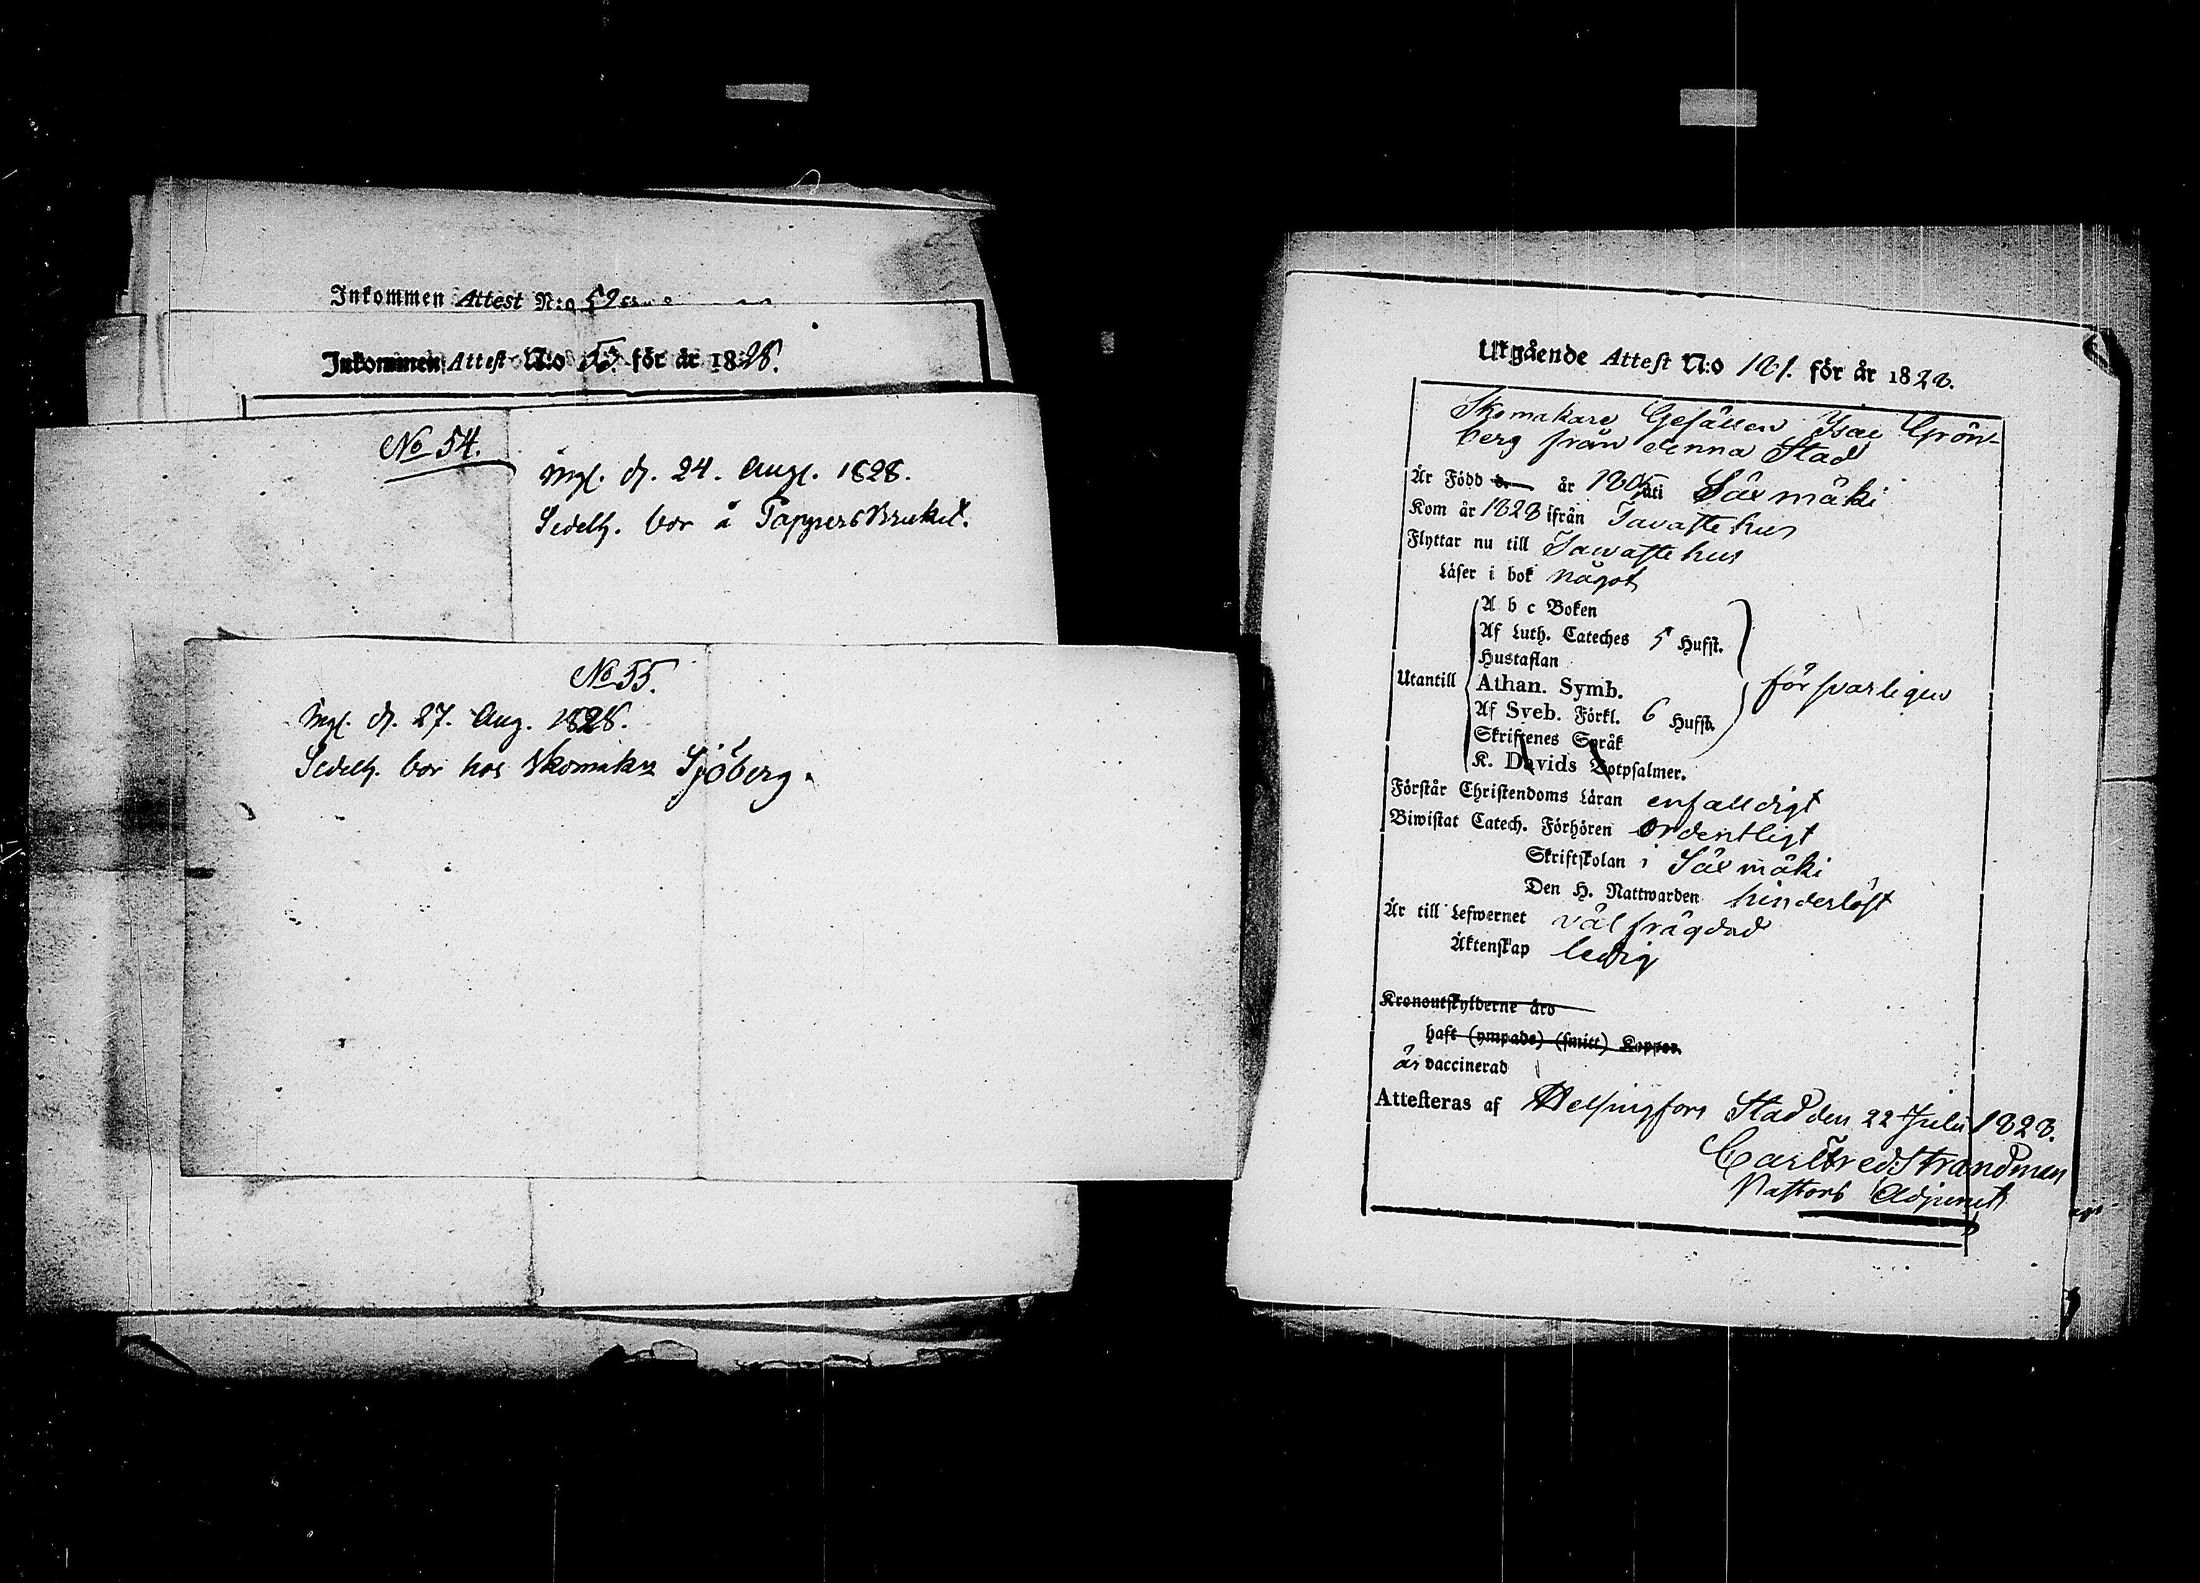 Inkommen Attest N:o 52
Inkommen Attest N:o 53 för år 1828.
No 54.
Ingl. d. 24. Aug. 1828.
Sedelh. bor å Tappers Bruket.
No 55.
Ingl. d. 27. Aug. 1828.
Sedelh. bor hos Skomakar Sjöberg.
Utgående Attest N:o 181. för år 1828.
Skomakare Gesällen Isac Grön-
berg från denna Stad
Är Född d. år 1805 uti Säxmäki
Kom år 1828 ifrån Tavastehus
Flyttar nu till Tavastehus
Läser i bok något
Utantill
A b c Boken
Af Luth. Cateches 5 Hufst.
Hustaflan
Athan. Symb.
Af Sveb. Förkl. 6 Hufst.
Skriftenes Språk
K. Davids Botpsalmer.
försvarligen
Förstår Christendoms Läran enfalldigt
Biwistat Catech. Förhören ordentligt
Skriftskolan i Säxmäki
Den H. Nattwarden hinderlöst
Är till Lefwernet välfrägdad
Äktenskap ledig
Kronoutskylderne äro
haft (ympade) (smitt) Koppor.
är vaccinerad
Attesteras af Helsingfors Stad den 22 Julii 1828.
Carl Fred: Strandman
Pastors Adjunct